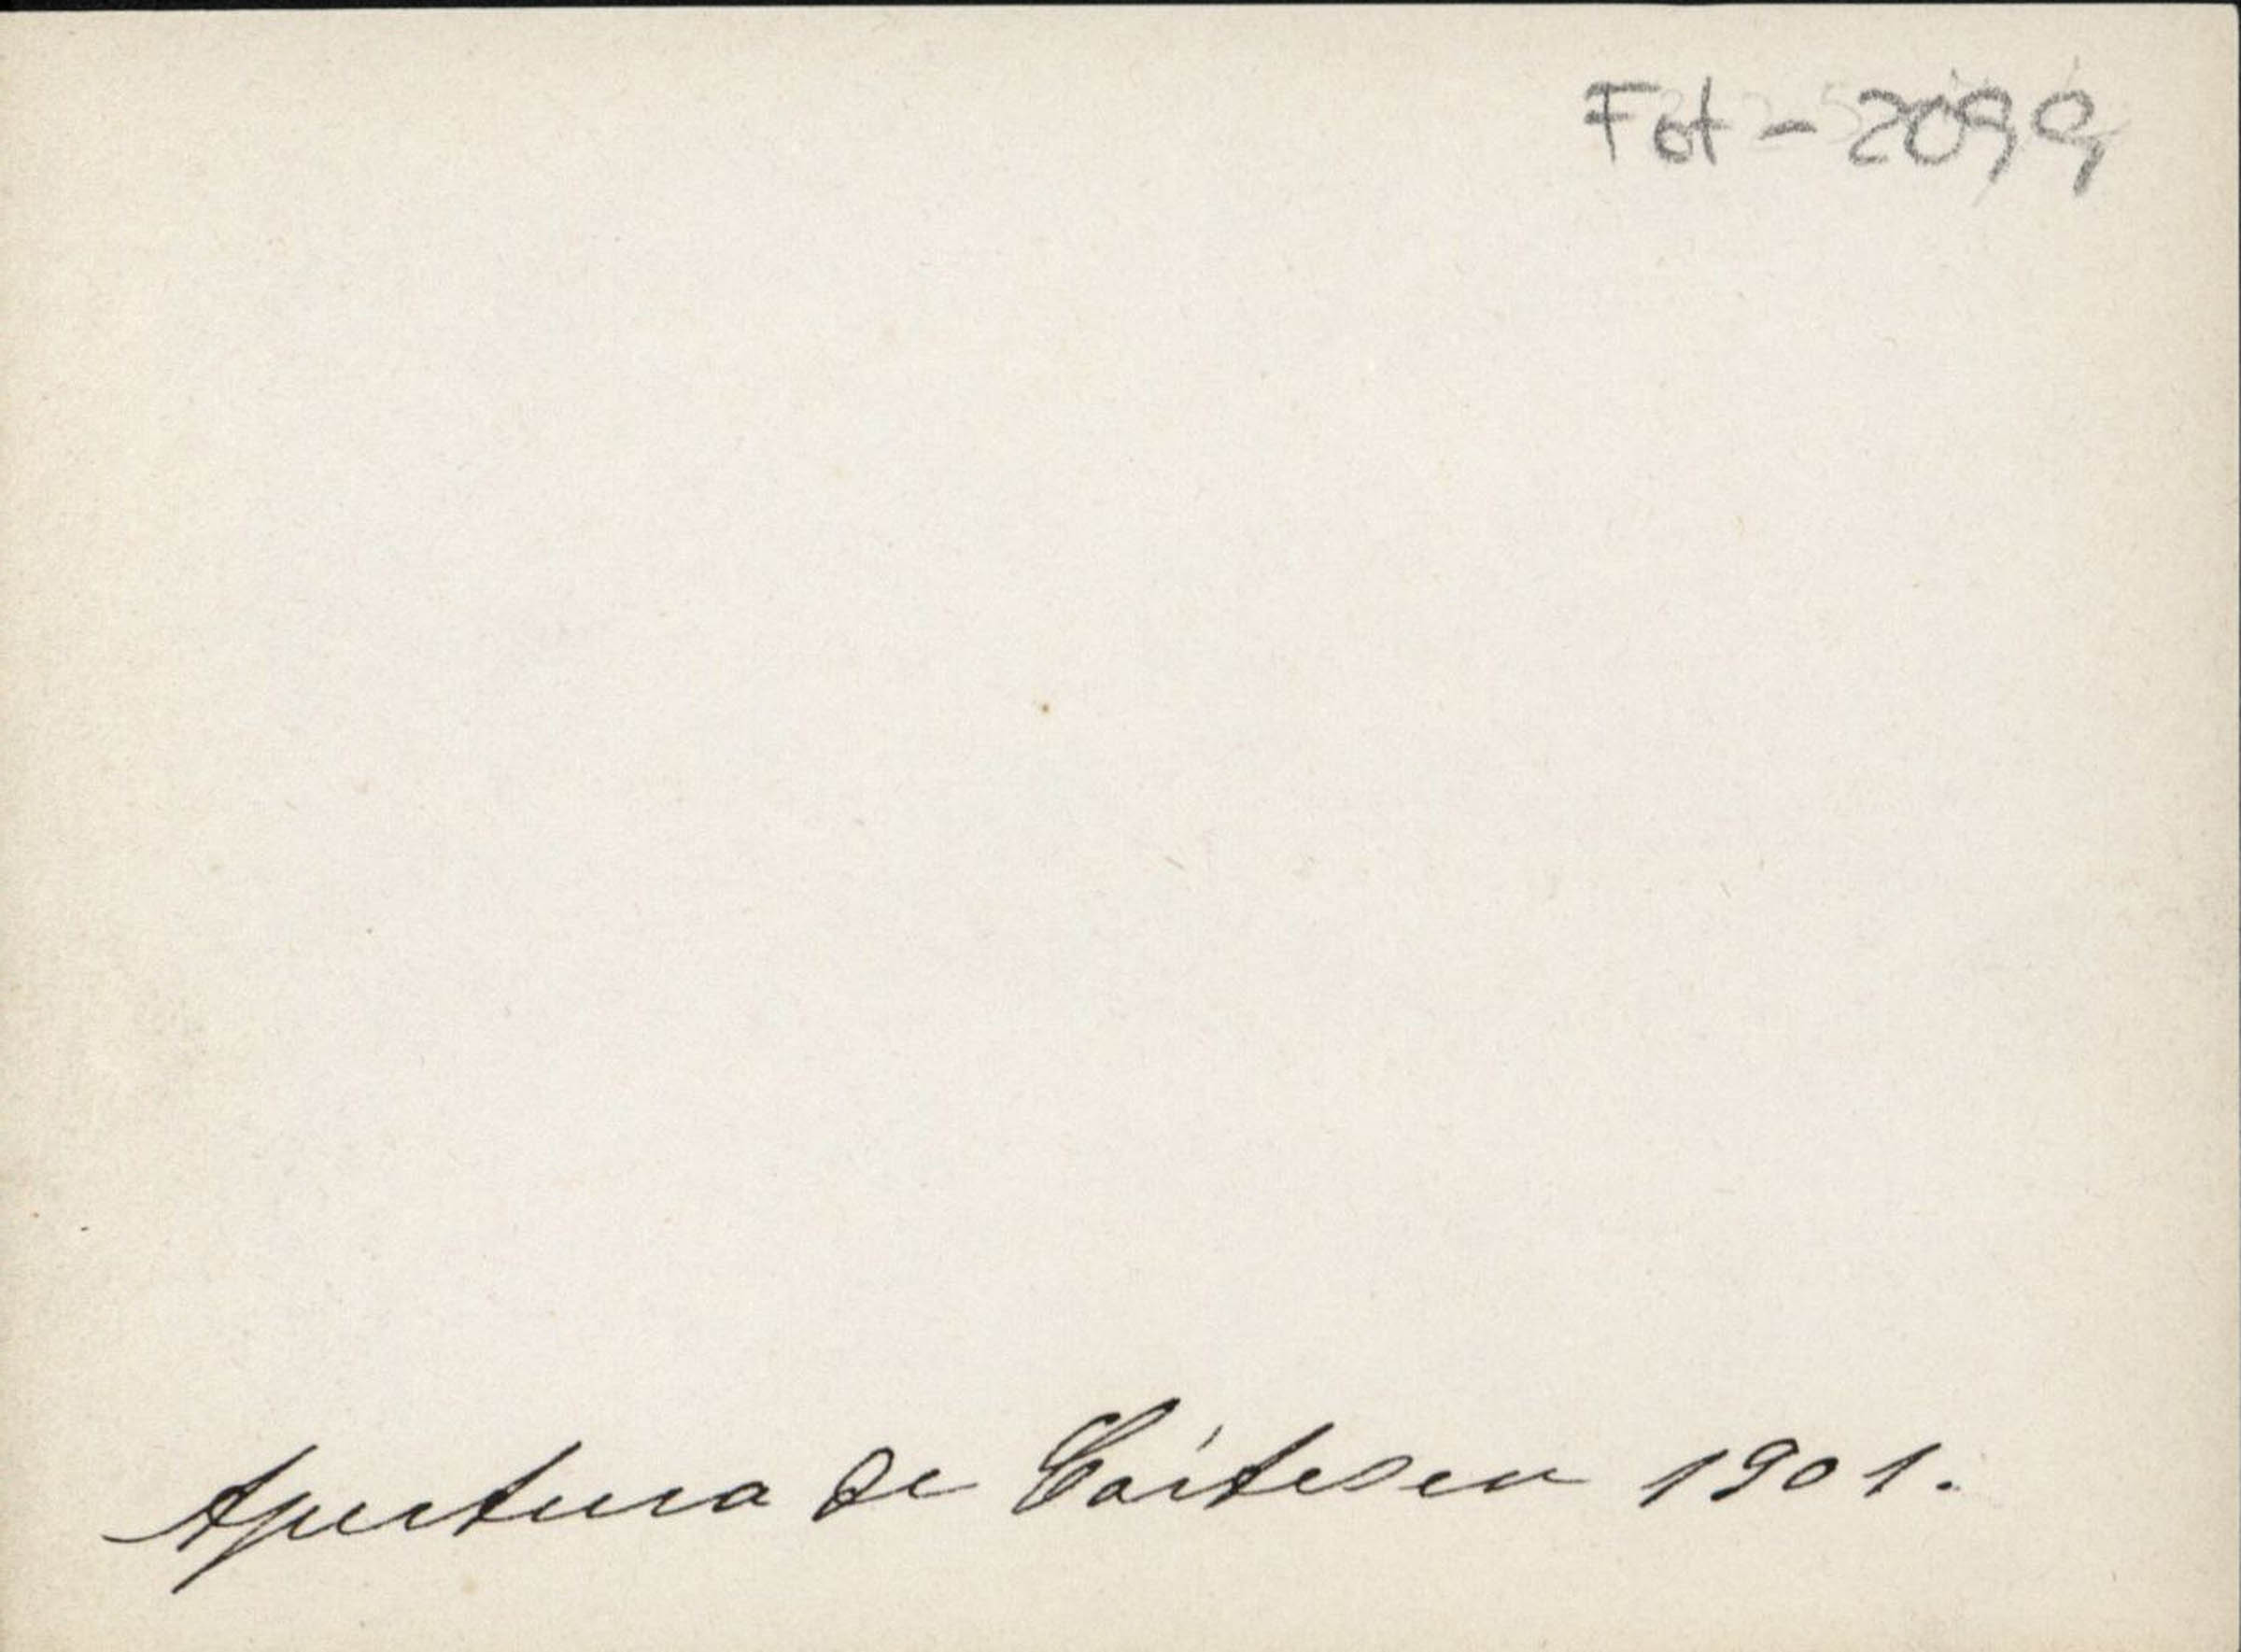 Fot-2099
Apertura de Córtes en 1901.